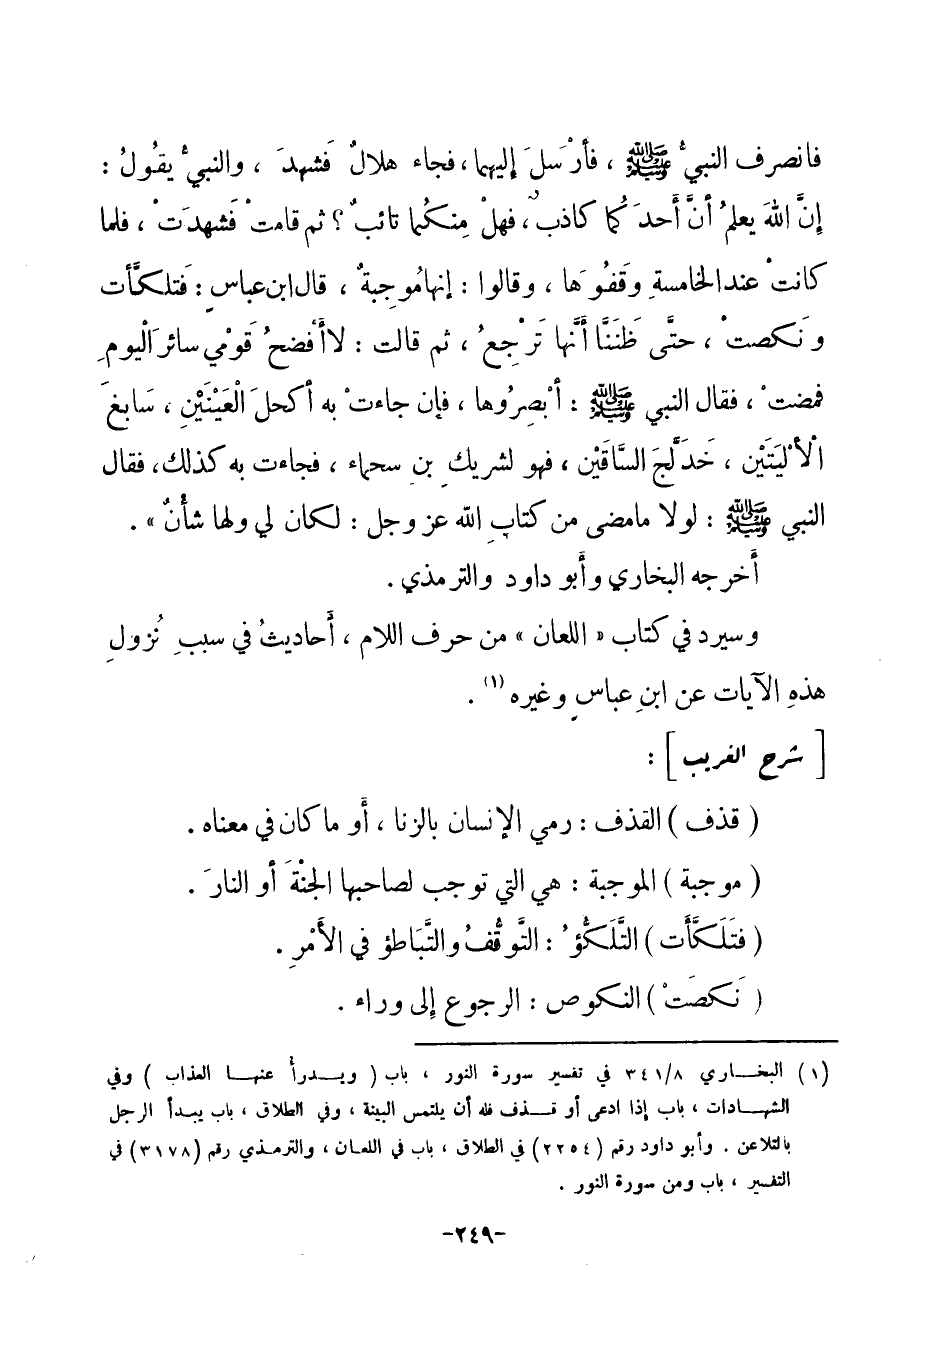 فانصرف النبيُّ ﷺ ، فأرْسَلَ إليهما، فجاء هلالٌ فَشهِدَ ، والنبيُّ يقُولُ :
إنَّ اللهَ يعلمُ أنَّ أَحدَكُما كاذبٌ، فهلْ مِنكُما تائبٌ ؟ ثم قامتْ فَشهدَتْ ، فلما
كانتْ عند الخامسةِ وَقَفُوهَا ، وقالوا : إنها مُوجِبةٌ ، قال ابن عباسٍ : فَتلكَّأت
ونَكصتْ ، حتَّى ظَنَنَّا أَنَّها تَرْجعُ ، ثم قالت : لا أَفضحُ قَوْمي سائرَ الْيومِ
فمضتْ ، فقال النبي ﷺ : أبْصِرُوها ، فإن جاءتْ به أكحلَ الْعَيْنَيْنِ ، سَابغَ
الْأليَتَيْن ، خَدلَّجَ السَّاقَيْن ، فهو لشريك بنِ سحماء ، فجاءت به كذلك، فقال
النبي ﷺ : لولا مامضى من كتابِ الله عز وجل : لكان لي ولها شأنٌ » .
أخرجه البخاري وأبو داود والترمذي .
وسيرد في كتاب « اللعان » من حرف اللام ، أحاديثُ في سببِ نُزولِ
هذهِ الآيات عن ابنِ عباسٍ وغيره (١) .
[ شرح الغريب ] :
( قذف ) القذف : رمي الإنسان بالزنا ، أو ما كان في معناه .
( موجبة ) الموجبة : هي التي توجب لصاحبها الجنَّةَ أو النارَ .
( فتَلَكَّأَت ) التَّلَكُّؤُ : التَّوقُّفُ والتَّبَاطؤ في الأَمْرِ .
( نَكصَتْ ) النكوص : الرجوع إلى وراء .
(١) البخاري ٣٤١/٨ في تفسير سورة النور ، باب ( ويدرأ عنها العذاب ) وفي
الشهادات ، باب إذا ادعى أو قذف فله أن يلتمس البينة ، وفي الطلاق ، باب يبدأ الرجل
بالتلاعن . وأبو داود رقم (٢٢٥٤) في الطلاق ، باب في اللعان ، والترمذي رقم (٣١٧٨) في
التفسير ، باب ومن سورة النور .
-٢٤٩-